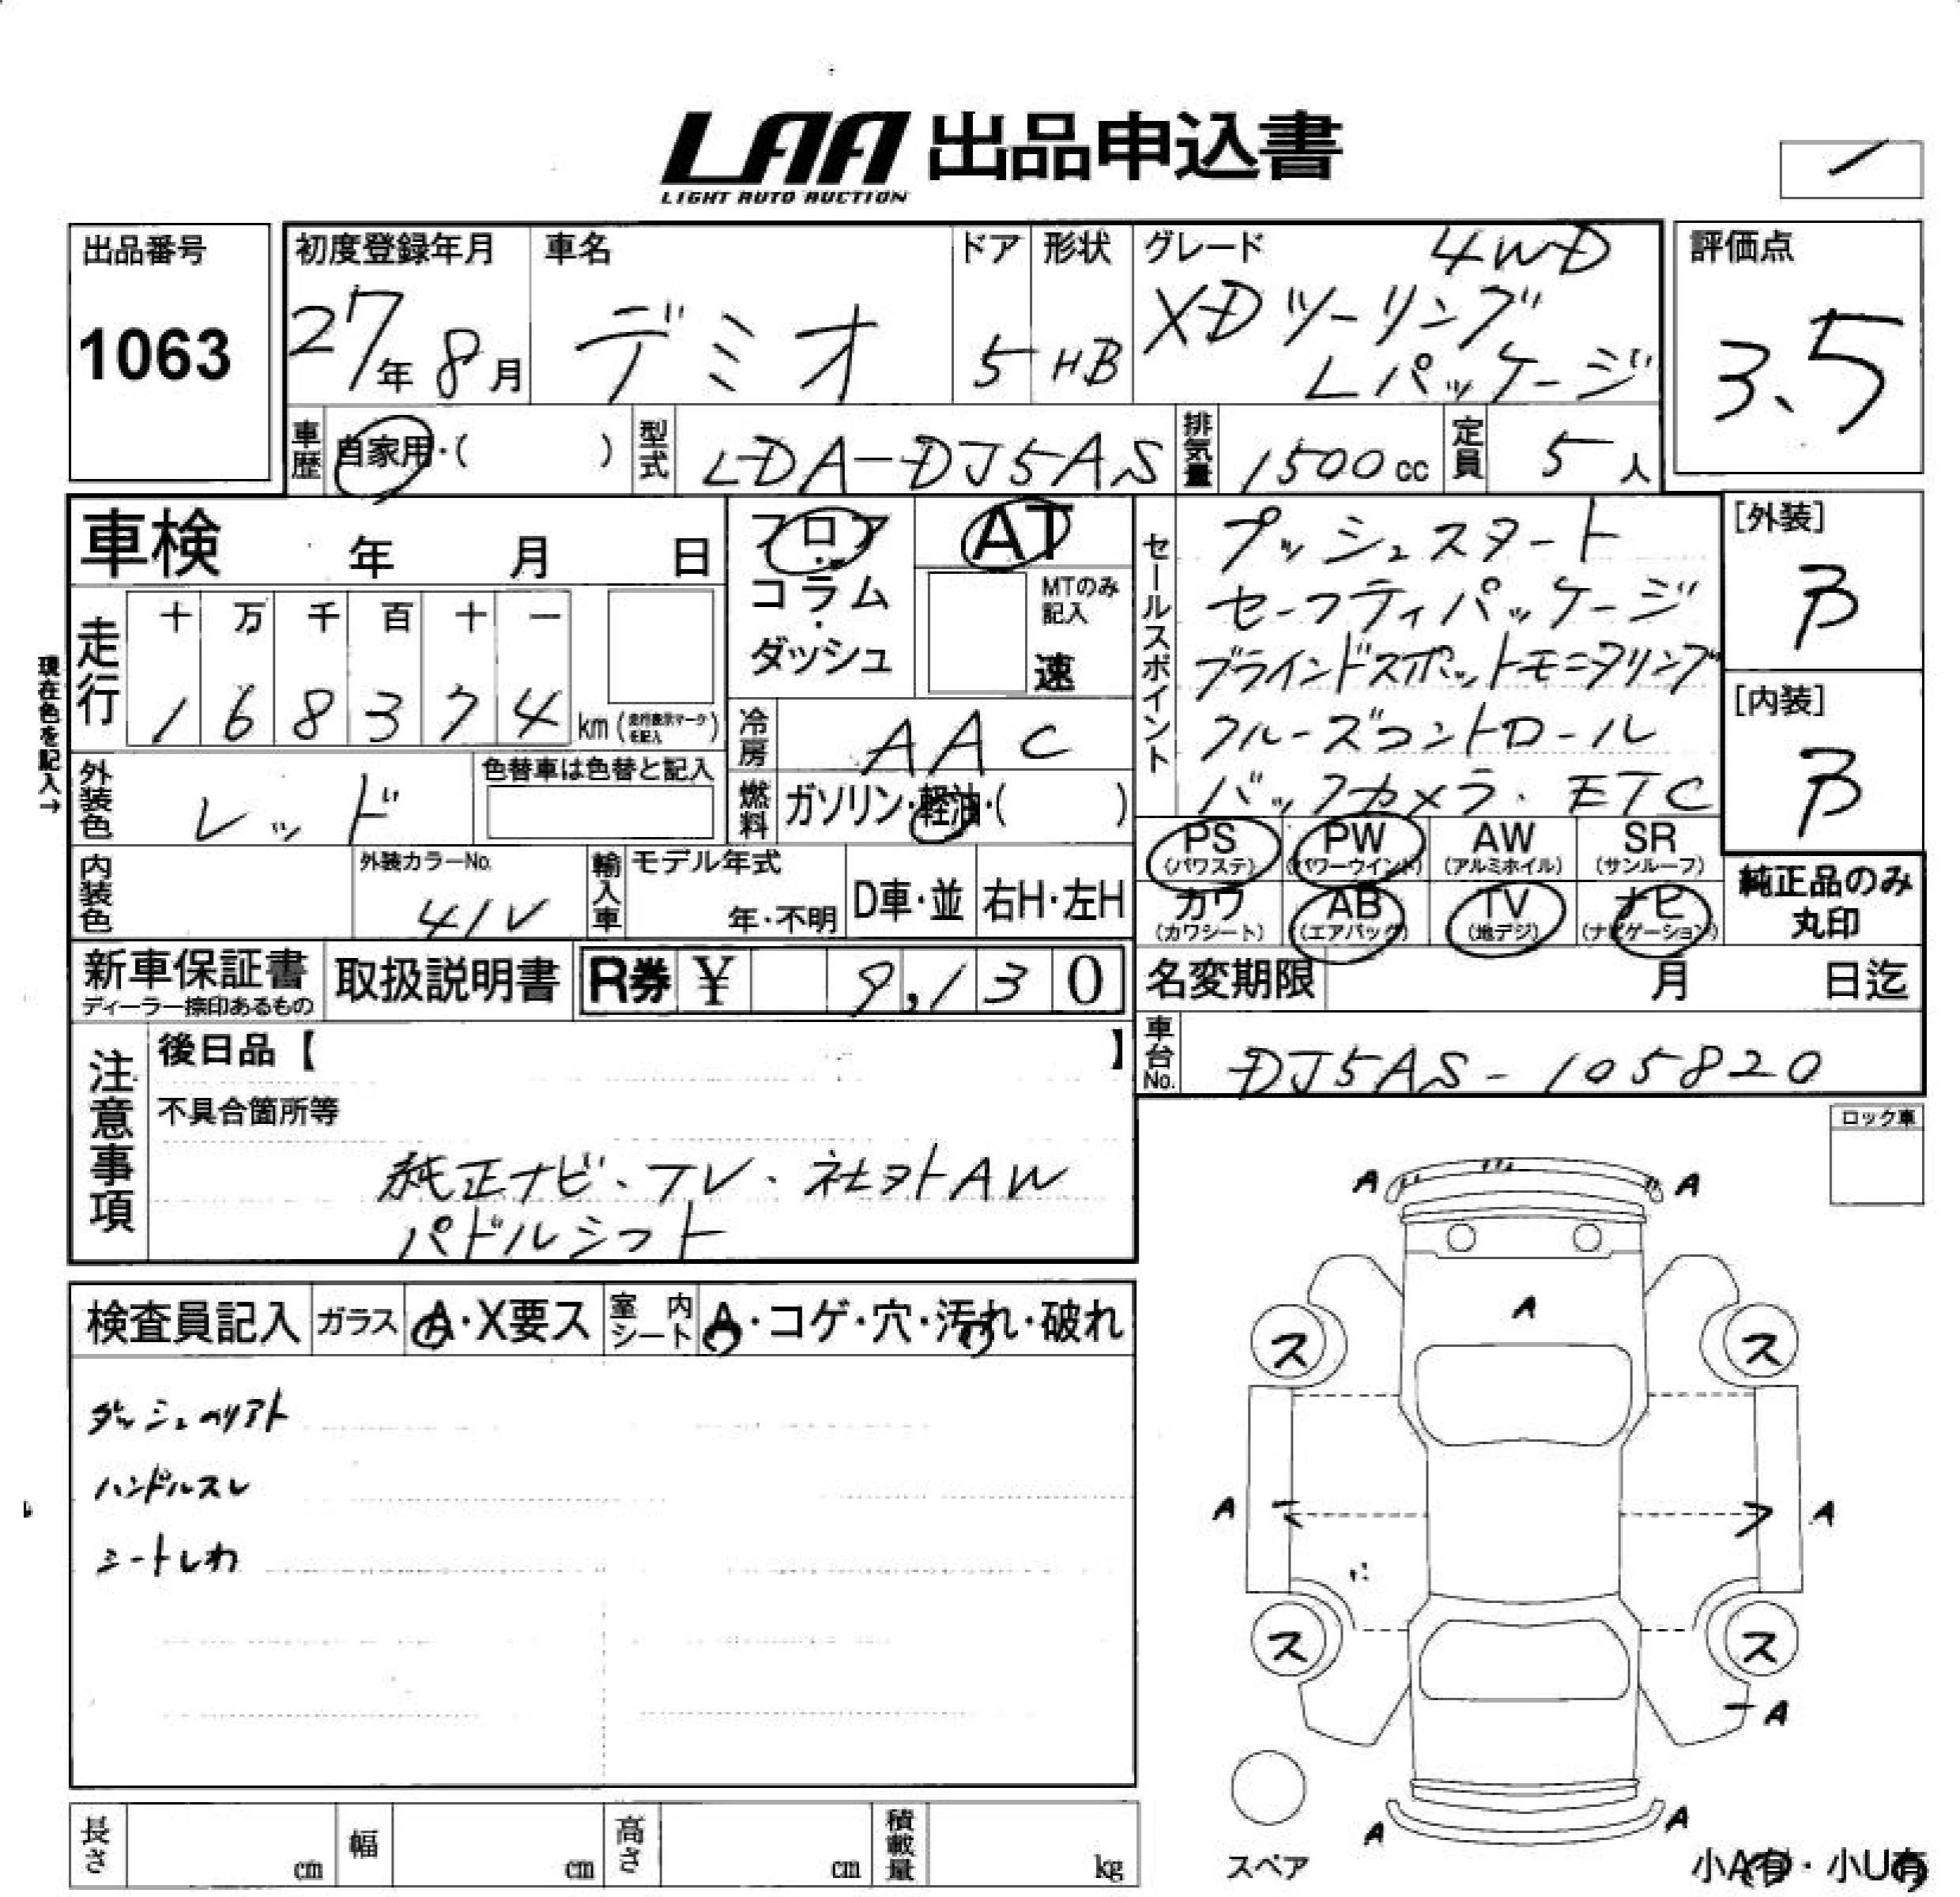 LAA 出品申込書
LIGHT AUTO AUCTION
出品番号
1063
初度登録年月
27年 8月
車名
デミオ
ドア
5
形状
HB
グレード
4WD
XDツーリング
Lパッケージ
評価点
3.5
車歴 自家用・( )
型式 LDA-DJ5AS
排気量 1500cc
定員 5人
車検 年 月 日
フロア・コラム・ダッシュ
AT
MTのみ記入
速
現在色を記入→
走行 十 万 千 百 十 一
1 6 8 3 7 4 km (走行表示マークを記入)
冷房 AAC
外装色 レッド
色替車は色替と記入
燃料 ガソリン・軽油・( )
内装色
外装カラーNo.
41V
輸入車 モデル年式
年・不明
D車・並 右H・左H
新車保証書
ディーラー捺印あるもの
取扱説明書
R券 ¥ 9,130
セールスポイント
プッシュスタート
セーフティパッケージ
ブラインドスポットモニタリング
クルーズコントロール
バックカメラ、ETC
[外装]
B
[内装]
B
PS (パワステ)
PW (パワーウインド)
AW (アルミホイル)
SR (サンルーフ)
カワ (カワシート)
AB (エアバック)
TV (地デジ)
ナビ (ナビゲーション)
純正品のみ
丸印
名変期限 月 日迄
車台No. DJ5AS-105820
注意事項
後日品【 】
不具合箇所等
純正ナビ、TV、社外AW
パドルシフト
ロック車
検査員記入 ガラス A・X要ス 室内シート A・コゲ・穴・汚れ・破れ
ダッシュペリアト
ハンドルスレ
シートしわ
A A
A
ス ス
A A
ス ス
A
A A
スペア
小A有・小U有
長さ cm 幅 cm 高さ cm 積載量 kg